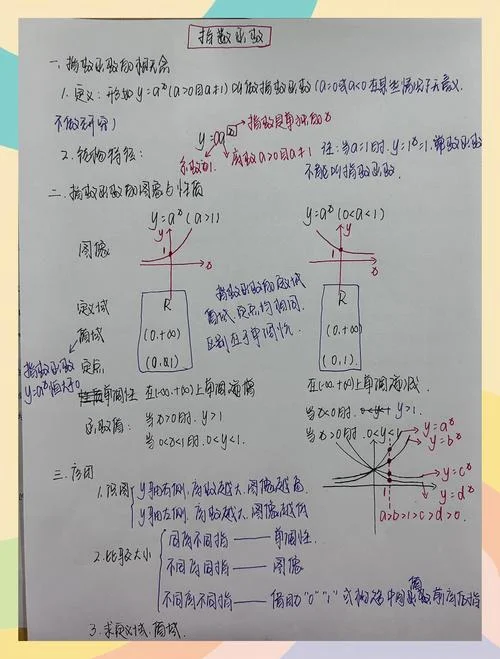 指数函数
一、指数函数的相关概念
1. 定义：形如 y=aˣ (a>0且a≠1) 叫做指数函数 (a=0或a<0在某些情况下无意义,
不做研究)
2. 结构特征:
y=aˣ
指数是单独的x
系数为1.
底数a>0且a≠1
注：当a=1时. y=1ˣ=1, 常数函数
不能叫指数函数.
二、指数函数的图像与性质
y=aˣ (a>1)
y=aˣ (0<a<1)
图像
y
1
x
y
1
x
定义域
R
R
值域
(0,+∞)
(0,+∞)
定点
(0,1)
(0,1)
指数函数的定义域
值域, 定点, 均相同.
区别在于单调性.
指数函数
y=aˣ恒大于0
单调性
在(-∞,+∞)上单调递增
在(-∞,+∞)上单调递减.
函数值:
当x>0时. y>1
当x<0时. 0<y<1.
当x<0时. y>1.
当x>0时. 0<y<1
y=aˣ
y=bˣ
y=cˣ
y=dˣ
a>b>1>c>d>0.
三、应用
1. 识图
y轴右侧. 底数越大. 图像越高.
y轴左侧. 底数越大. 图像越低
2. 比较大小
同底不同指 —— 单调性.
不同底同指 —— 图像
不同底不同指 —— 借用"0" "1" 或构造中间函数 前底后指
3. 求定义域. 值域.